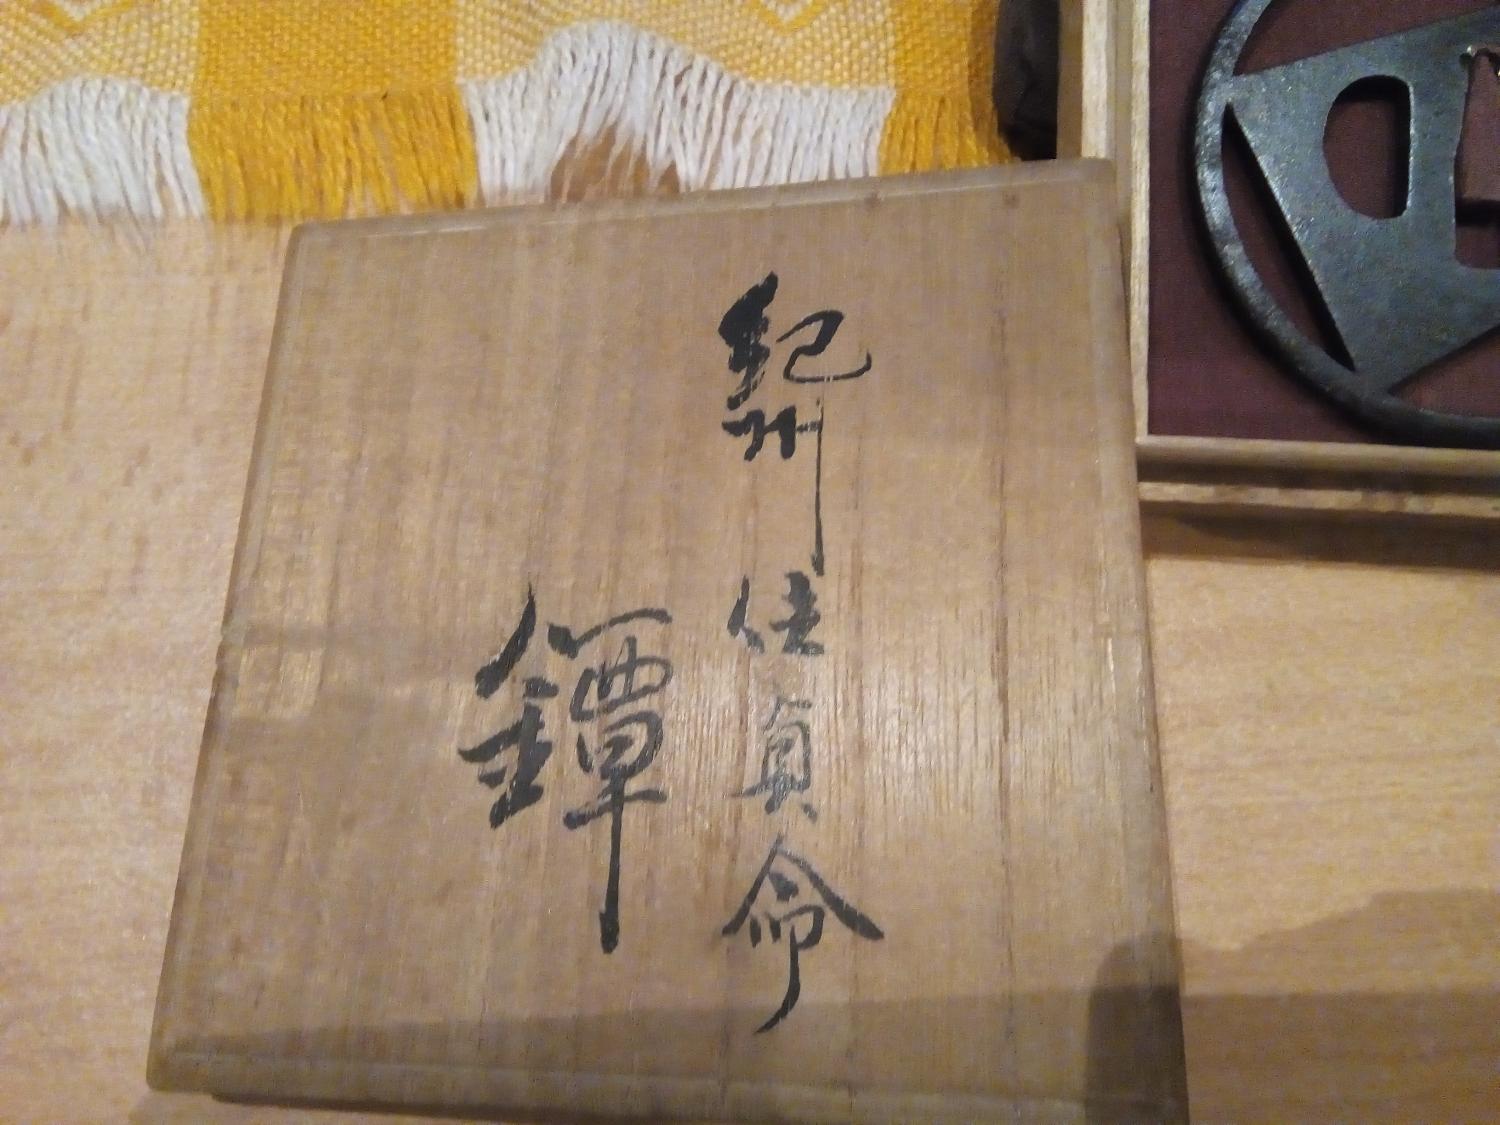 紀州住貞命
鐔